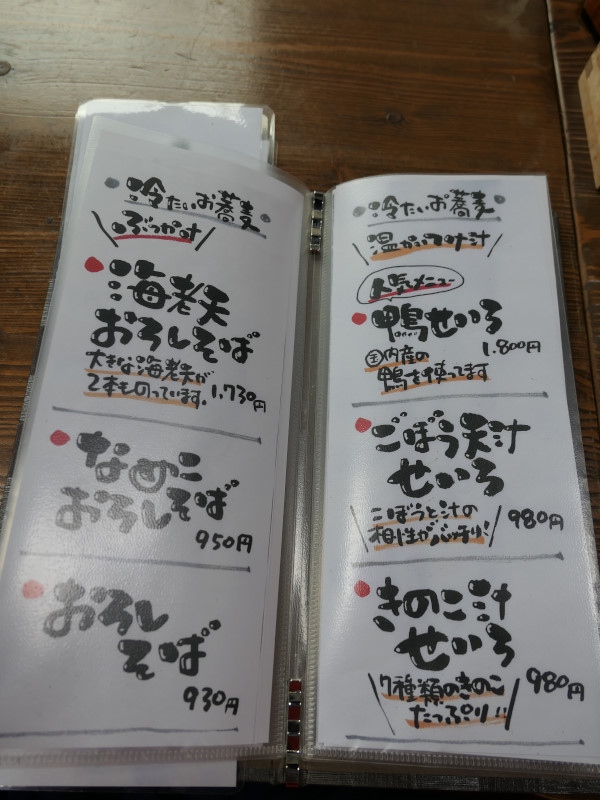 冷たいお蕎麦
ぶっかけ
海老天
おろしそば
大きな海老天が
2本ものっています。
1.730円
なめこ
おろしそば
950円
おろし
そば
930円
冷たいお蕎麦
温かいつけ汁
人気メニュー
鴨せいろ
1.800円
国内産の
鴨を使ってます
ごぼう天汁
せいろ
ごぼうと汁の
相性がバッチリ!
980円
きのこ汁
せいろ
7種類のきのこ
たっぷり!!
980円